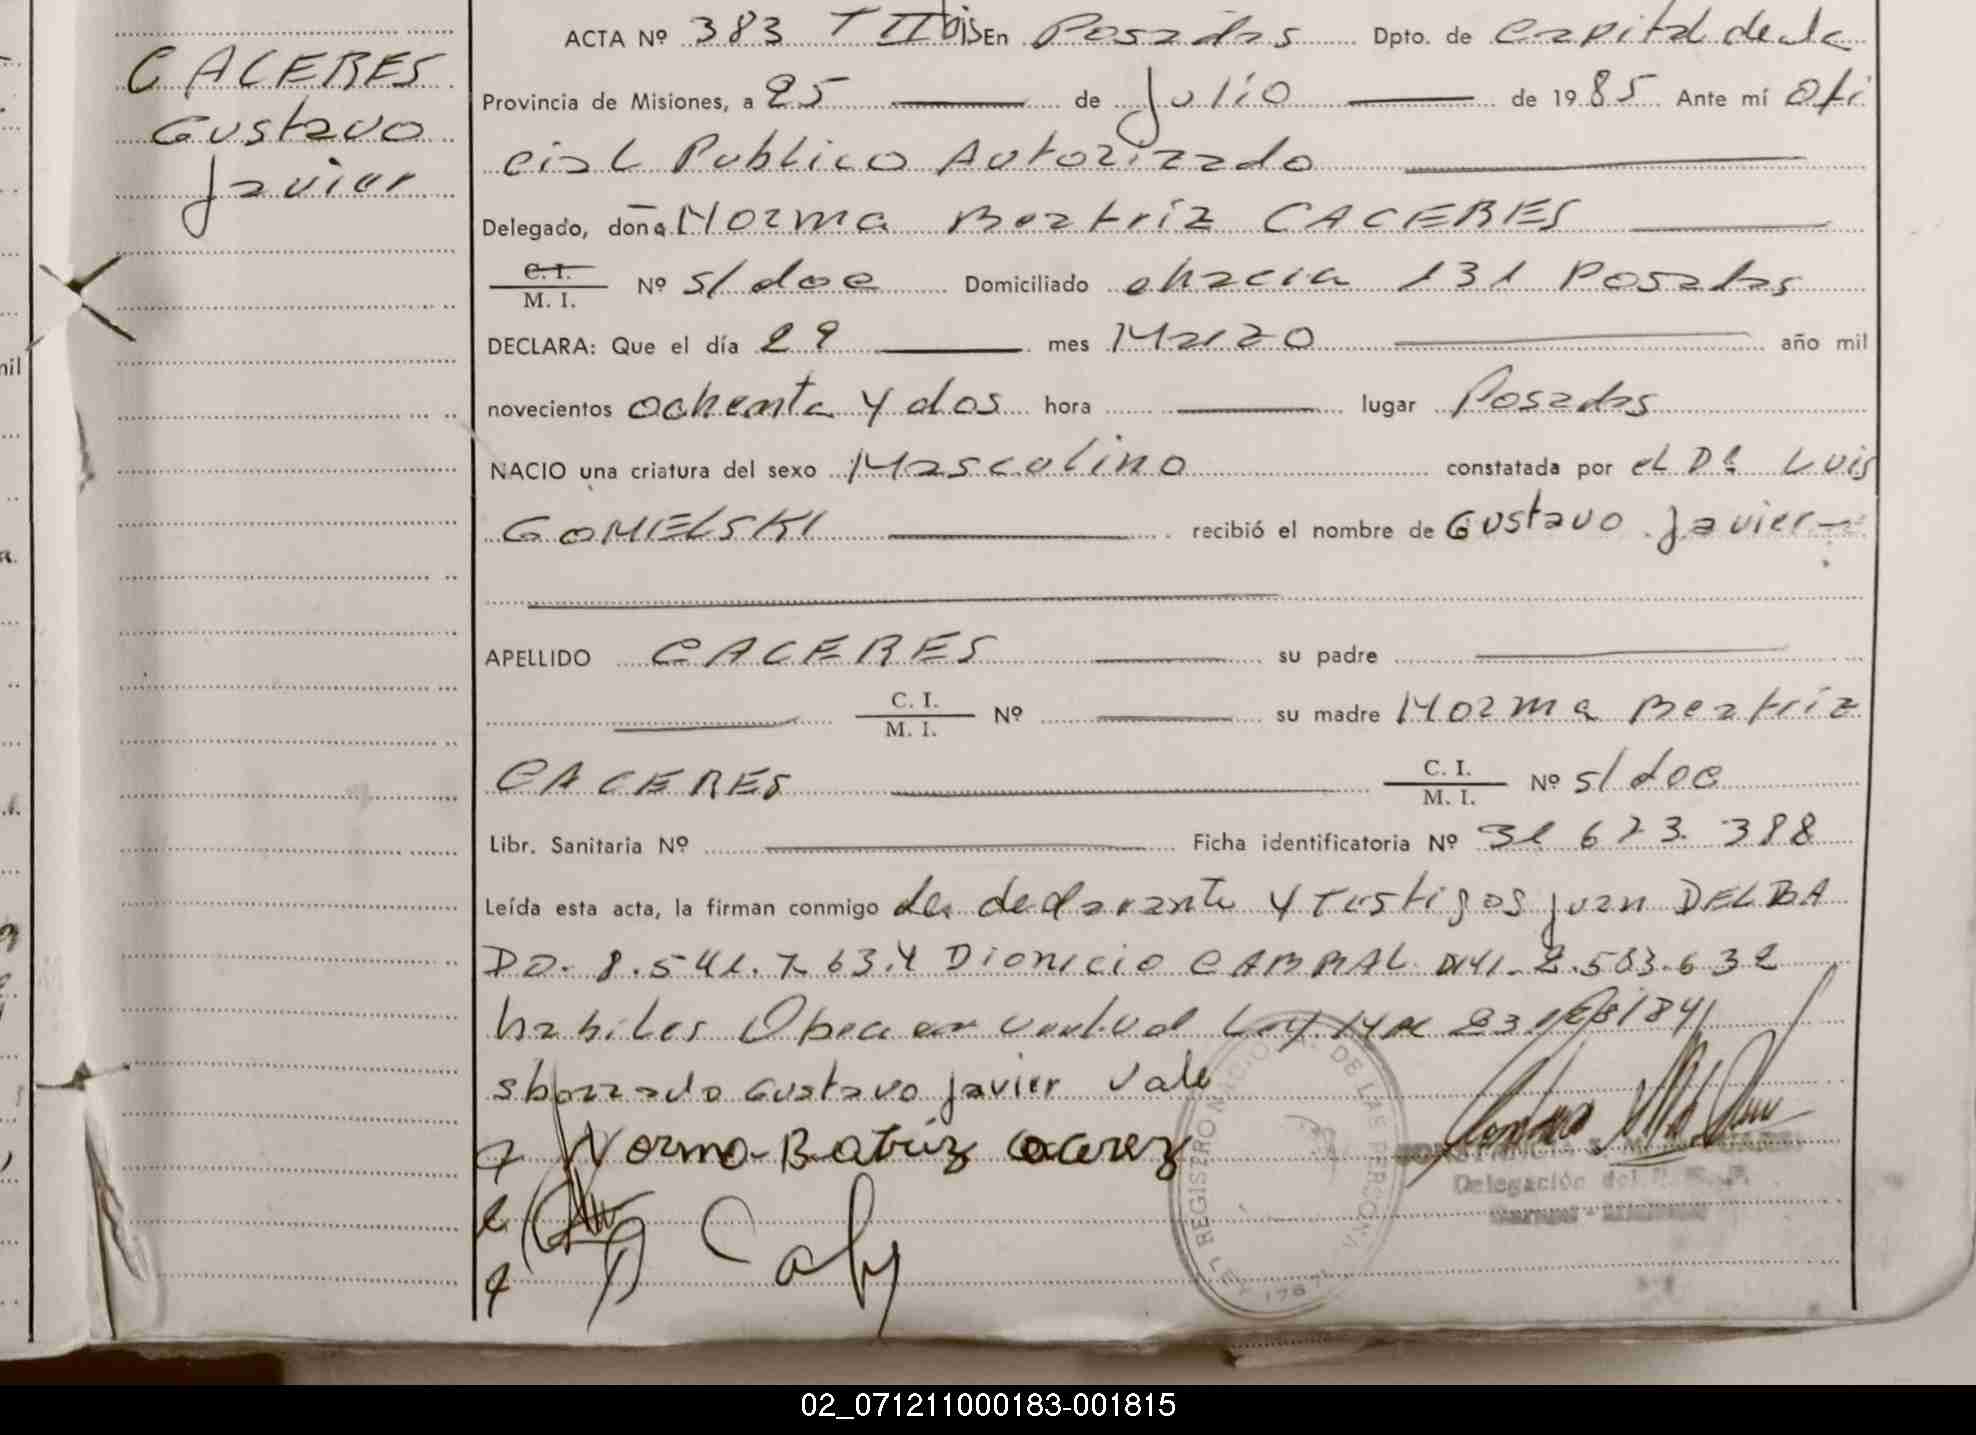 CACERES
Gustavo
Javier
ACTA Nº 383 T II bis En Posadas Dpto. de Capital de la
Provincia de Misiones, a 25 de Julio de 1985 Ante mí Ofi
cial Publico Autorizado
Delegado, doña Norma Beatriz CACERES
C. I.
M. I. Nº s/doc Domiciliado chacra 131 Posadas
DECLARA: Que el día 29 mes Marzo año mil
novecientos ochenta y dos hora lugar Posadas
NACIO una criatura del sexo Masculino constatada por el Dr Luis
GOMELSKI recibió el nombre de Gustavo Javier
APELLIDO CACERES su padre
C. I.
M. I. Nº su madre Norma Beatriz
CACERES C. I.
M. I. Nº s/doc
Libr. Sanitaria Nº Ficha identificatoria Nº 31 673 388
Leída esta acta, la firman conmigo la declarante y testigos Juan DELBA
DO. 8.541.763 y Dionicio CABRAL DNI
habiles Ley Nº
s/borrado Gustavo Javier vale
Norma Batriz Cacerez
REGISTRO NACIONAL DE LAS PERSONAS
Delegación del
02_071211000183-001815